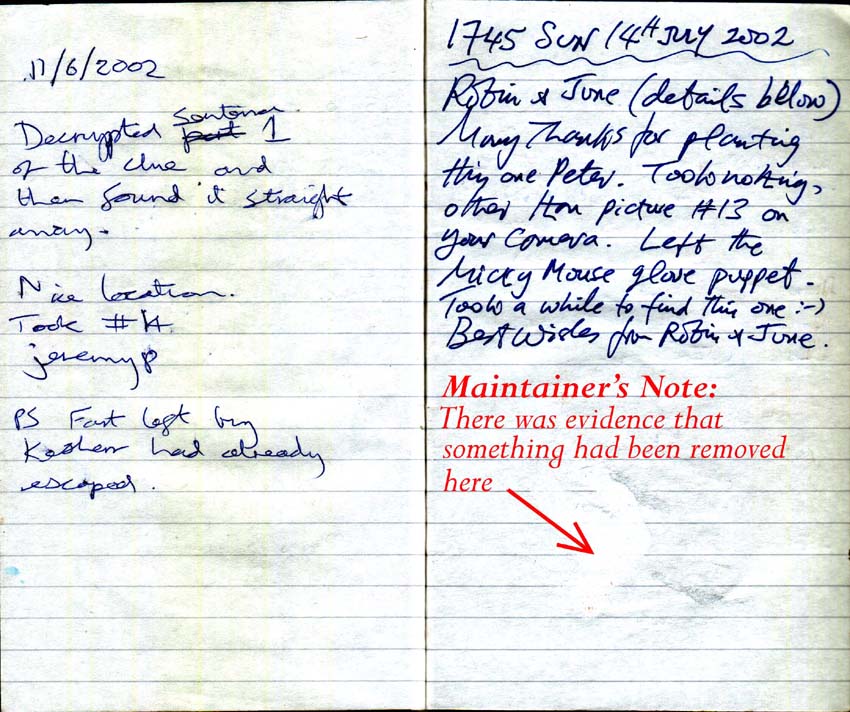 11/6/2002
sentence
Decrypted part 1
of the clue and
then found it straight
away.
Nice location.
Took #14.
jeremyp
PS Fart left by
had already
escaped.
1745 SUN 14TH JULY 2002
Robin & June (details below)
Many Thanks for planting
this one Peter. Took nothing,
other than picture #13 on
your Camera. Left the
Micky Mouse glove puppet.
Took a while to find this one :-)
Best Wishes from Robin & June.
Maintainer's Note:
There was evidence that
something had been removed
here